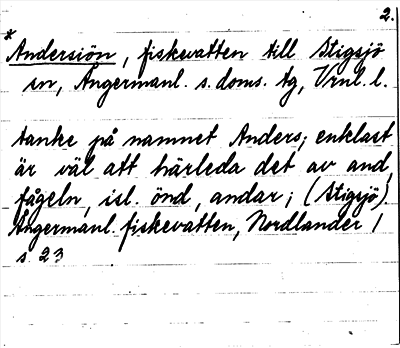 2.
*Andersiön, fiskevatten till Stigsjö
sn, Ångermanl. s. doms. tg, Vrnl. l.
tanke på namnet Anders; enklast
är väl att härleda det av and,
fågeln, isl. önd, andar; (Stigsjö)
Ångermanl. fiskevatten, Nordlander 1
s 23